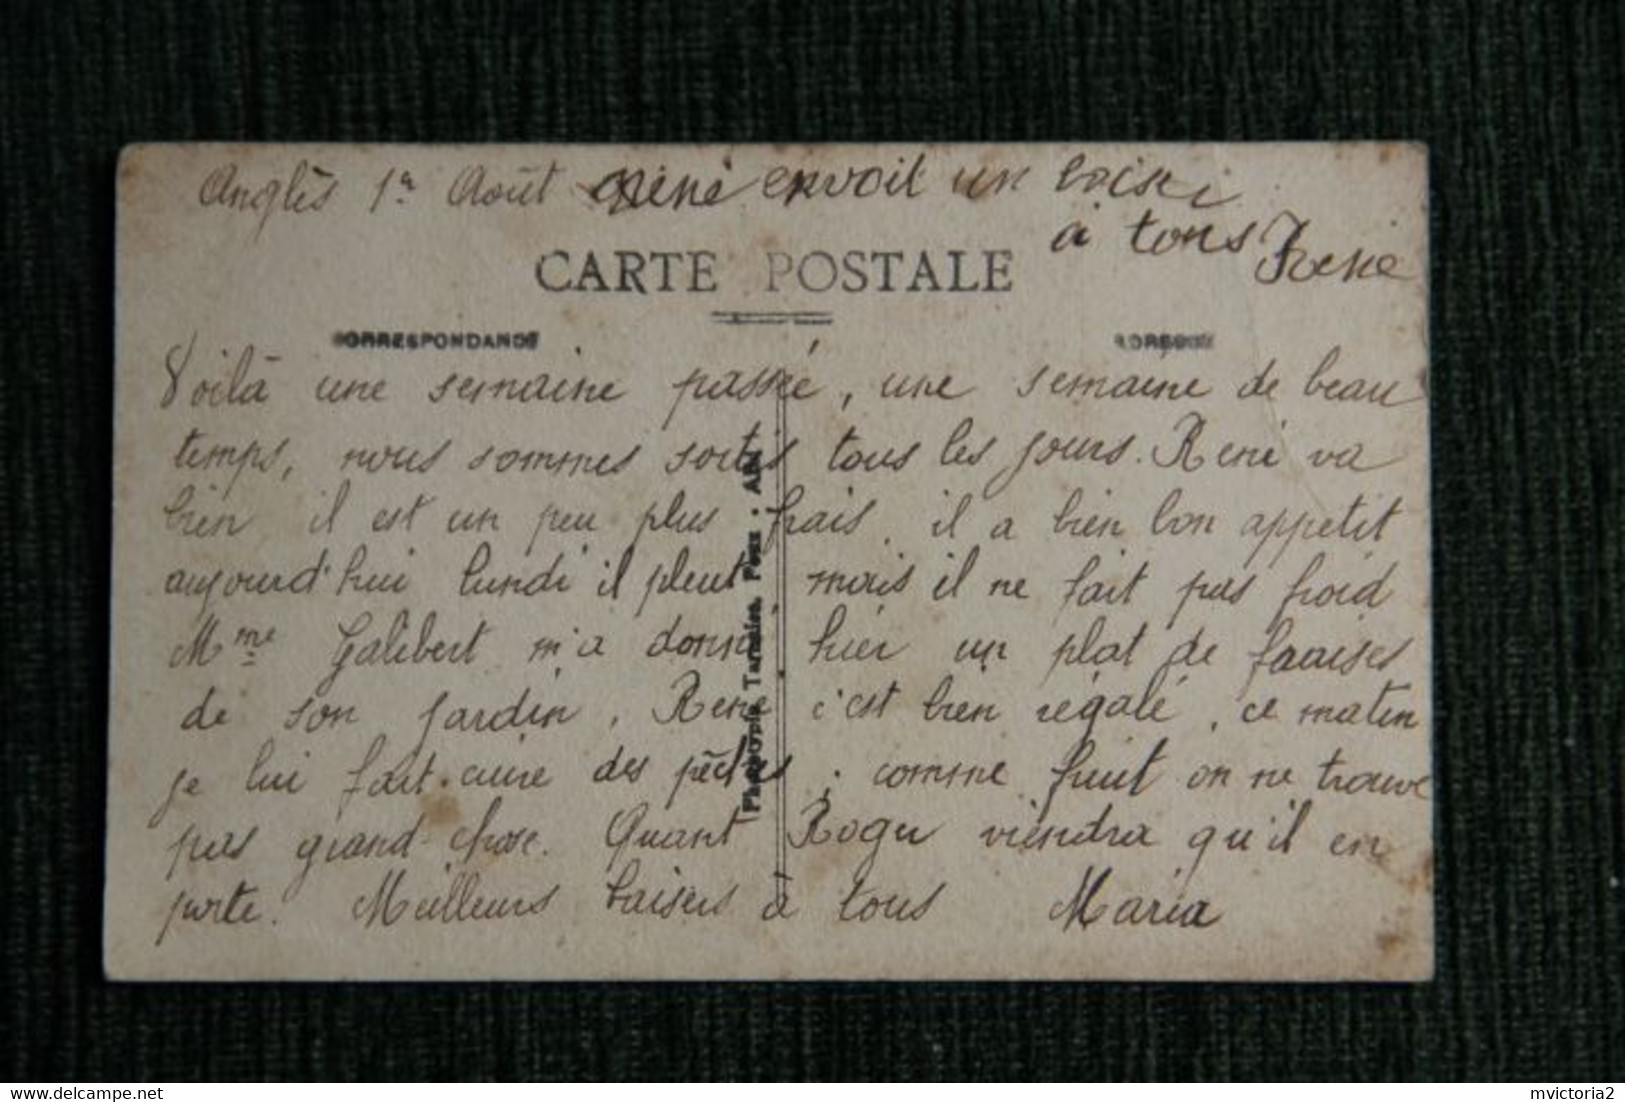 Anglès 1er Août Réné envoit un
à tous
René
CARTE POSTALE
CORRESPONDANCE
ADRESSE
Voilà une semaine passé, une semaine de beau
temps, nous sommes sortis tous les jours. René va
bien il est un peu plus frais, il a bien bon appetit
aujourd'hui lundi il pleut, mais il ne fait pas froid
Mme Galibert m'a donné hier un plat de fraises
de son jardin, René c'est bien régalé, ce matin
je lui fait cuire des pêches, comme fruit on ne trouve
pas grand chose. Quant Roger viendra qu'il en
porte. Meilleurs baisers à tous Maria
Phototypie Tarnaise. Poux : ALBI
mvictoria2